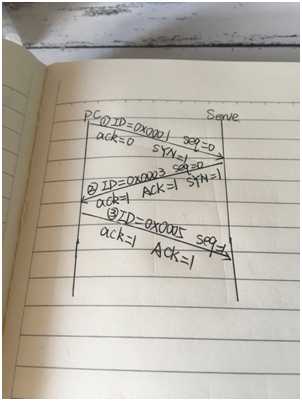 PC Serve
① ID=0x0001 seq=0
ack=0 SYN=1
② ID=0x0003 seq=0
ack=1 ACK=1 SYN=1
③ ID=0x0005 seq=1
ack=1 ACK=1